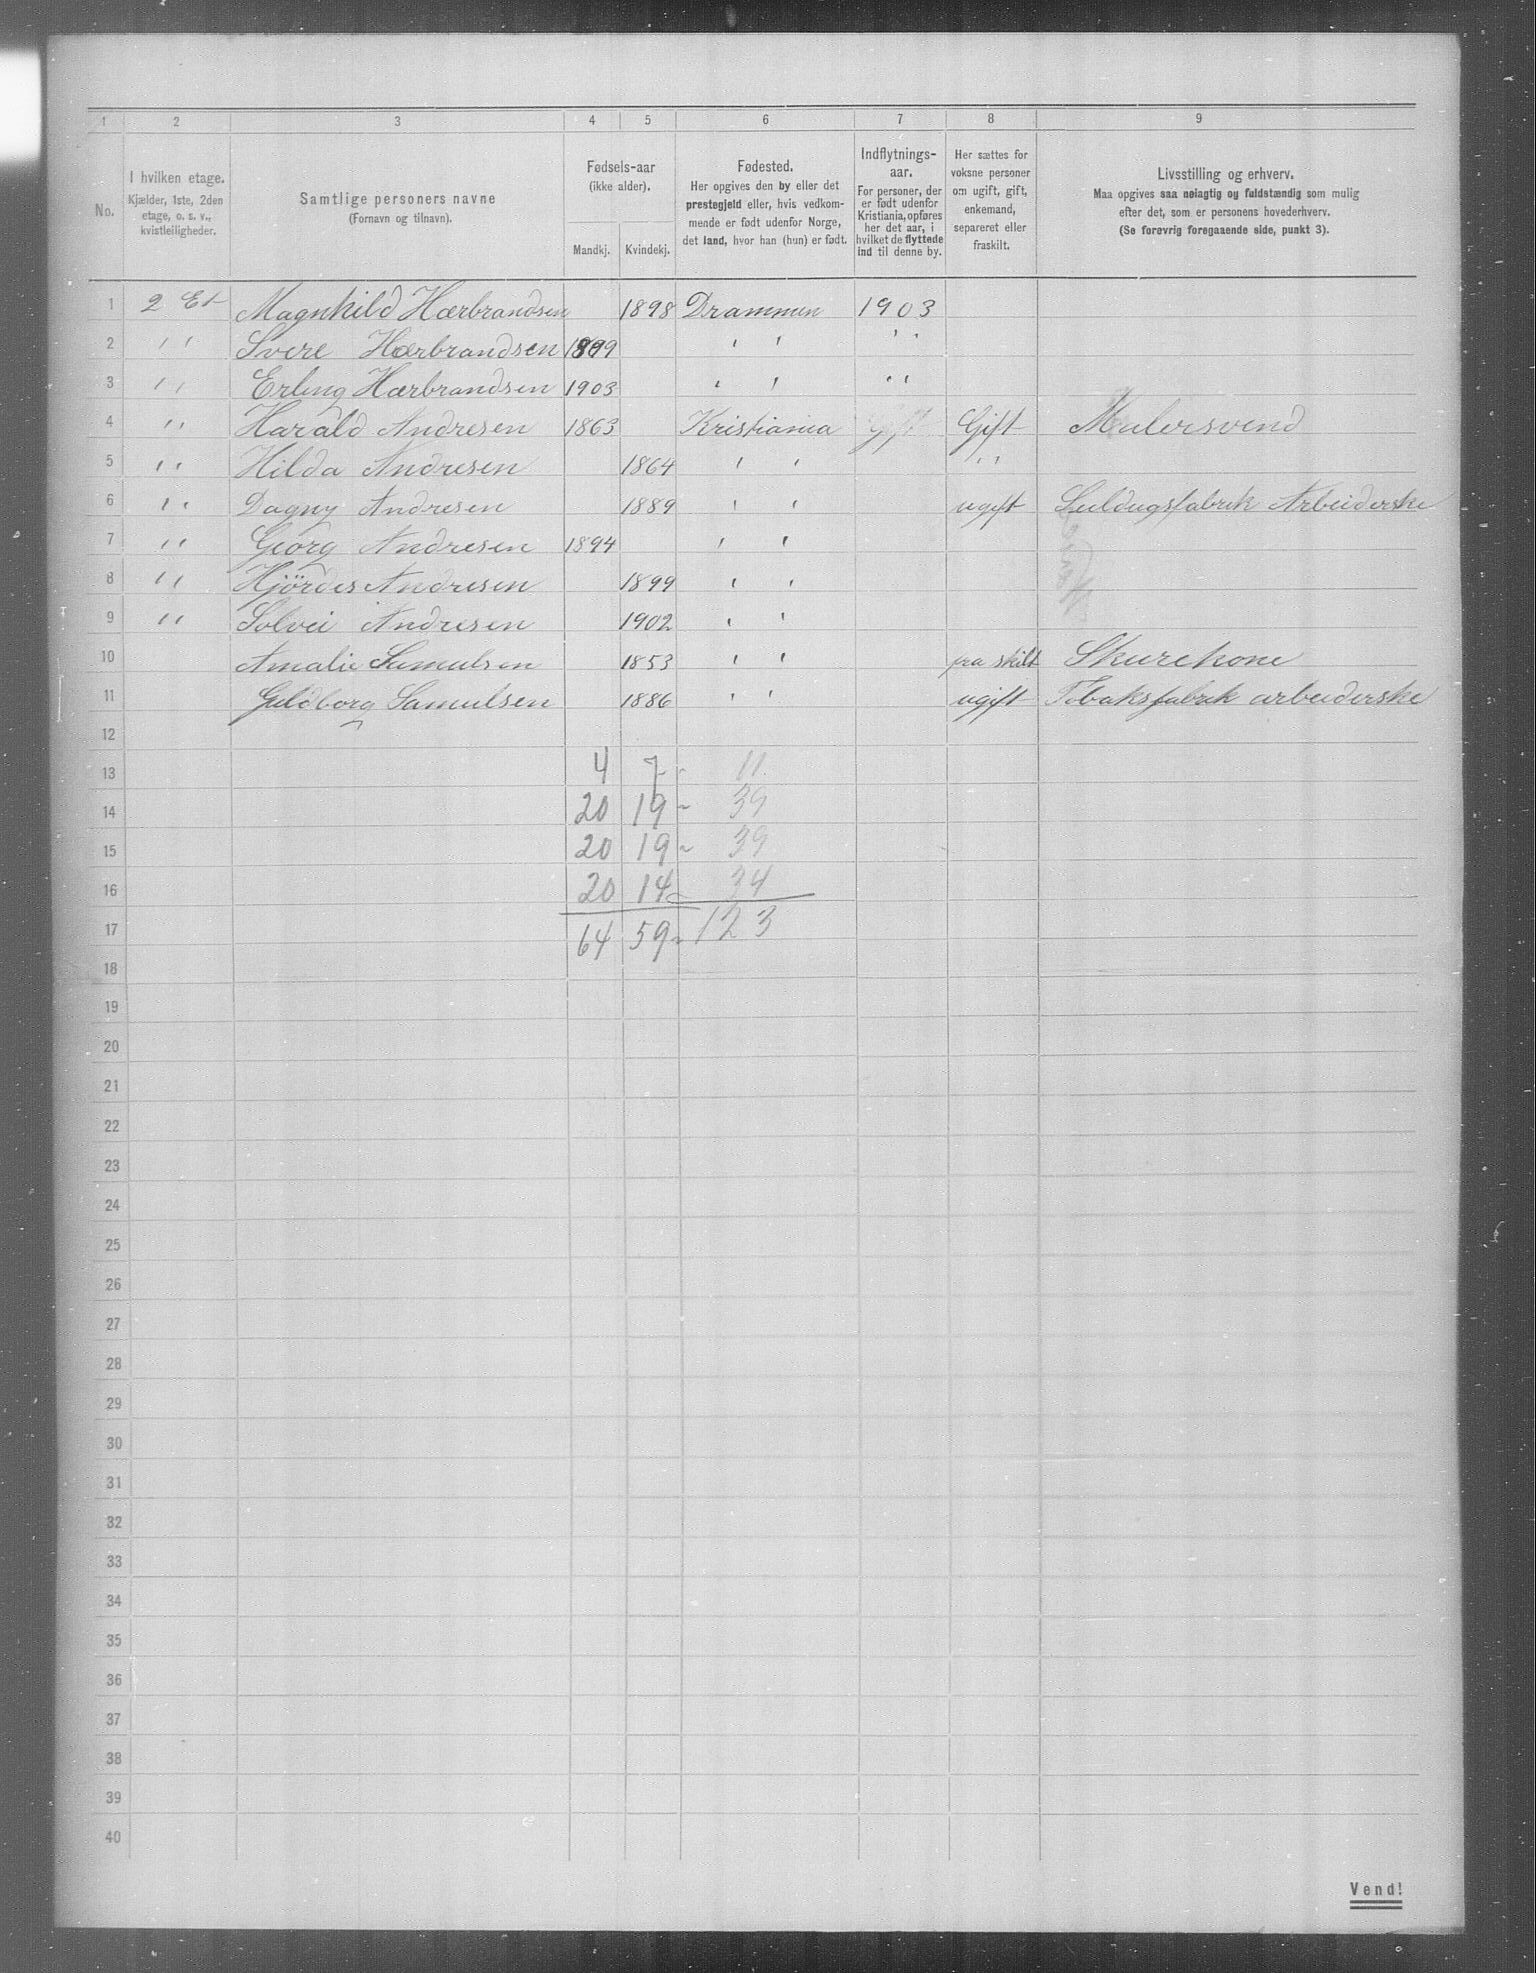 1 2 3 4 5 6 7 8 9
No.
I hvilken etage.
Kjælder, 1ste, 2den
etage, o. s. v.,
kvistleiligheder.
Samtlige personers navne
(Fornavn og tilnavn).
Fødsels-aar
(ikke alder).
Mandkj. Kvindekj.
Fødested.
Her opgives den by eller det
prestegjeld eller, hvis vedkom-
mende er født udenfor Norge,
det land, hvor han (hun) er født.
Indflytnings-
aar.
For personer, der
er født udenfor
Kristiania, opføres
her det aar, i
hvilket de flyttede
ind til denne by.
Her sættes for
voksne personer
om ugift, gift,
enkemand,
separeret eller
fraskilt.
Livsstilling og erhverv.
Maa opgives saa nøiagtig og fuldstændig som mulig
efter det, som er personens hovederhverv.
(Se forøvrig foregaaende side, punkt 3).
1 2 Et Magnhild Hærbrandsen 1898 Drammen 1903
2 " Svere Hærbrandsen 1899 " " "
3 " Erling Hærbrandsen 1903 " " "
4 " Harald Andresen 1863 Kristiania Gift Gift Malersvend
5 " Hilda Andresen 1864 " " "
6 " Dagny Andresen 1889 " " ugift Seildugsfabrik Arbeiderske
7 " Georg Andresen 1894 " "
8 " Hjördis Andresen 1899 " "
9 " Solvei Andresen 1902 " "
10 Amalie Samulsen 1853 " " fra skilt Skurekone
11 Guldborg Samulsen 1886 " " ugift Tobaksfabrik arbeiderske
12
13 4 7 - 11
14 20 19 - 39
15 20 19 - 39
16 20 14 - 34
17 64 59 - 123
18
19
20
21
22
23
24
25
26
27
28
29
30
31
32
33
34
35
36
37
38
39
40
Vend!